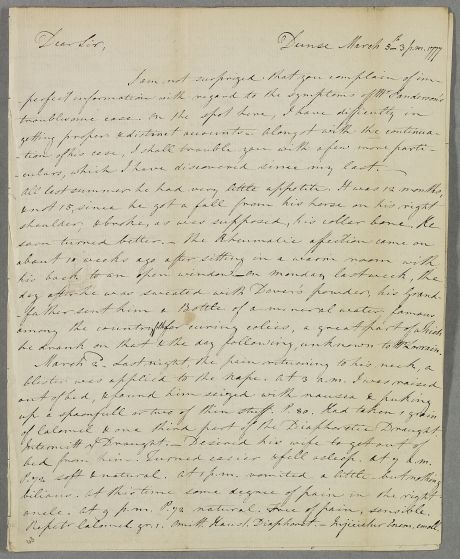 Dear Sir,
Dunse March 3d 3 p.m. 1777
I am not surprized that you complain of im-
perfect information with regard to the symptoms of Mr Sanderson's
troublesome case. On the spot here, I have difficulty in
getting proper & distinct accounts. Along with the continua-
tion of his case, I shall trouble you with a few more parti-
culars, which I have discovered since my last.
All last summer he had very little appetite. It was 12 months,
& not 18, since he got a fall from his horse on his right
shoulder, & broke, as was supposed, his coller bone. He
soon turned better. - The Rheumatic affection came on
about 10 weeks ago after sitting in a warm room with
his back to an open window. On monday last week, the
day after he was sweated with Dover's powder, his Grand-
father sent him a Bottle of a mineral water, famous
among the country for curing colics, a great part of which
he drank on that & the day following, unknown to
March 2. - Last night the pain returning to his neck, a
blister was applied to the nape. At 3 a.m. I was raised
out of bed, & found him seized with nausea & puking
up a spoonfull or two of thin stuff. P. 80. Had taken 1 grain
of Calomel & one third part of the Diaphoretic Draught
Intermitt Draught. - Desired his wife to get out of
bed from him. Turned easier & fell asleep. At 9 a.m.
P. 72 soft & natural. At 1 p.m. vomited a little but nothing
bilious. At this time some degree of pain in the right
ancle. At 9 p.m. P. 72 natural. Free of pain, sensible.
Repet. Calomel gr. 1. Omitt. Haust. Diaphoret. - Injiciatur Enem. emoll.